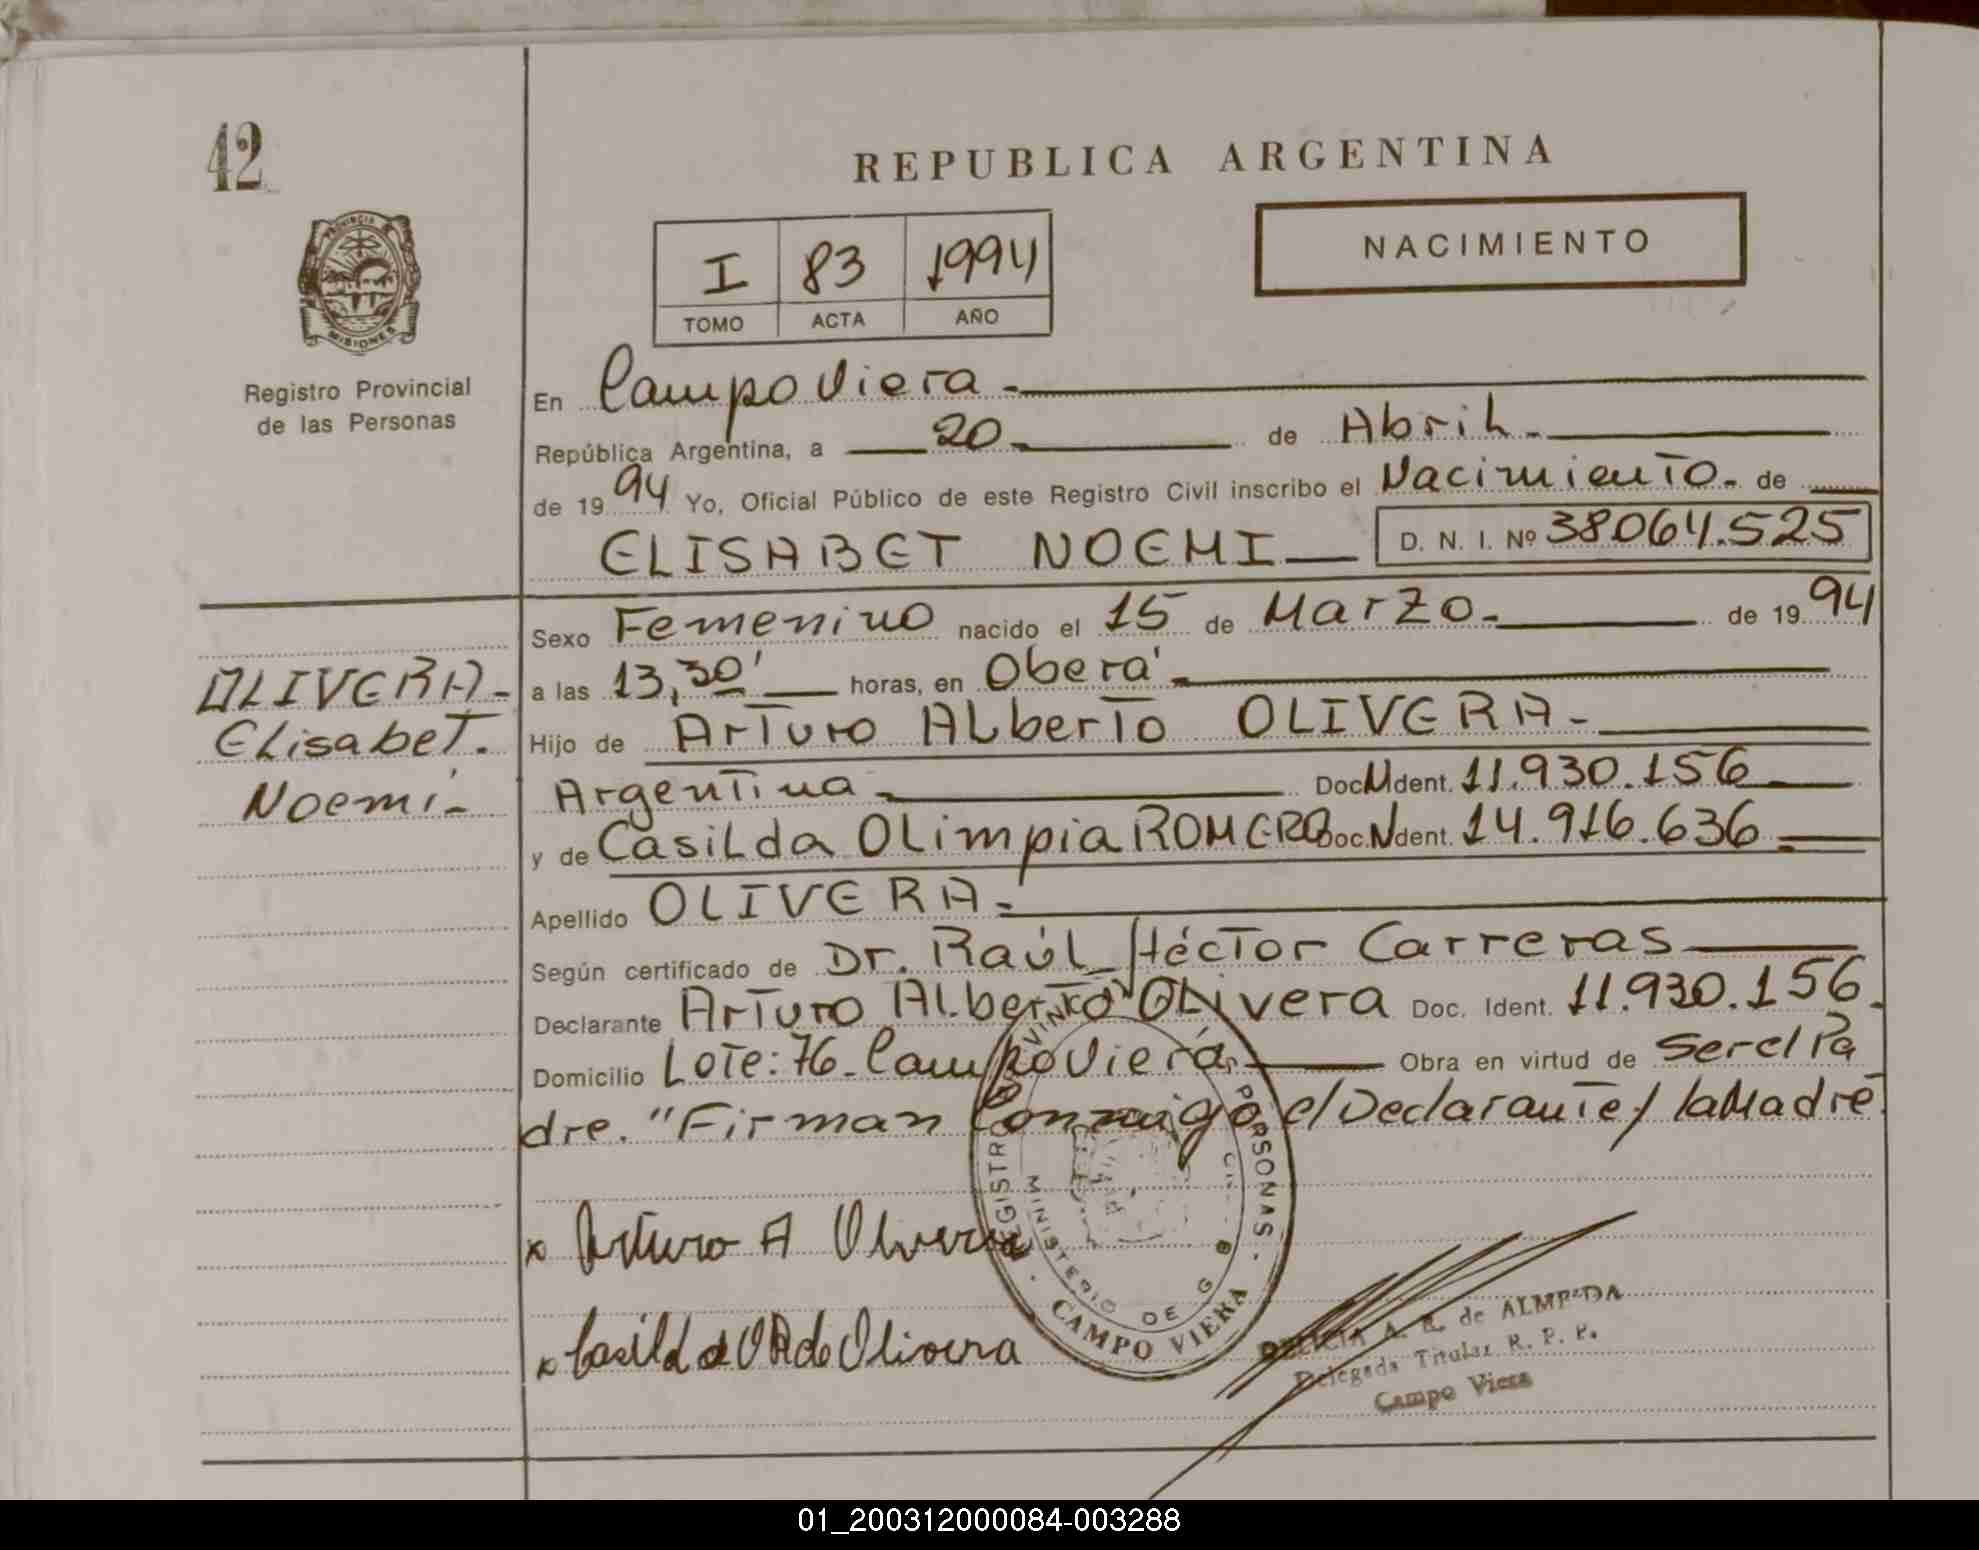 42
REPUBLICA ARGENTINA
NACIMIENTO
I 83 1994
TOMO ACTA AÑO
PROVINCIA
MISIONES
Registro Provincial
de las Personas
En Campo Viera
República Argentina, a 20 de Abril
de 1994 Yo, Oficial Público de este Registro Civil inscribo el Nacimiento de
ELISABET NOEMI D. N. I. Nº 38064.525
Sexo Femenino nacido el 15 de Marzo de 1994
a las 13,30' horas, en Oberá
Hijo de Arturo Alberto OLIVERA
Argentina Doc. M Ident. 11.930.156
y de Casilda Olimpia ROMERO Doc. N Ident. 14.916.636
Apellido OLIVERA
Según certificado de Dr. Raúl Héctor Carreras
Declarante Arturo Alberto Olivera Doc. Ident. 11.930.156
Domicilio Lote: 76 - Campo Viera Obra en virtud de Ser el Pa
dre. "Firman Conmigo el Declarante y la Madre
OLIVERA
Elisabet
Noemí
x Arturo A Olivera
x Casilda O R de Olivera
PERSONAS
MINISTERIO DE G
CAMPO VIERA
A. R. de ALMEIDA
Delegada Titular R. P. P.
Campo Viera
01_200312000084-003288